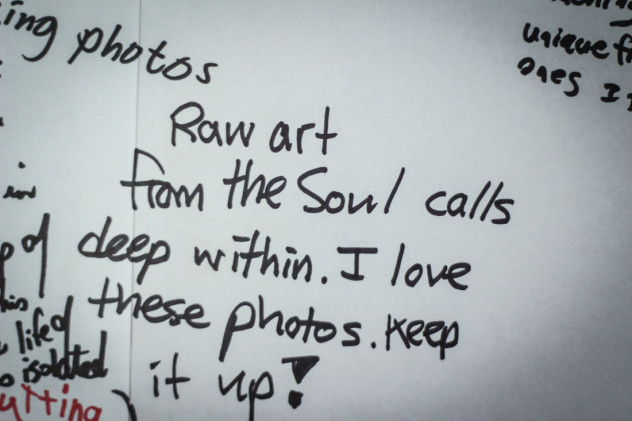 photos
Raw art
from the Soul calls
deep within. I love
these photos. Keep
it up!
unique
ones I
of
life
isolated